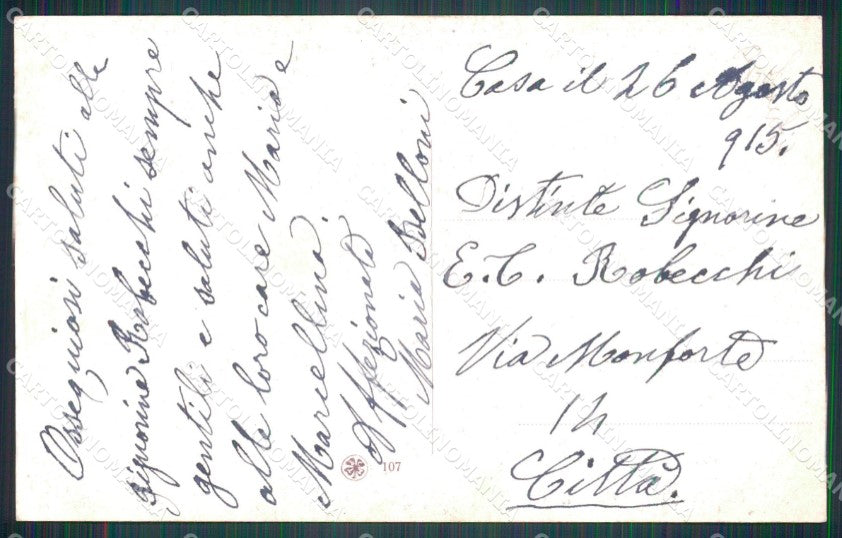 Ossequiosi saluti alle
signorine Robecchi sempre
gentili e saluti anche
alle loro care Maria e
Marcellina.
Affezionata
Maria Belloni
107
Casa il 26 Agosto
915.
Distinte Signorine
E. C. Robecchi
Via Monforte
14
Città.
CARTOLINOMANIA